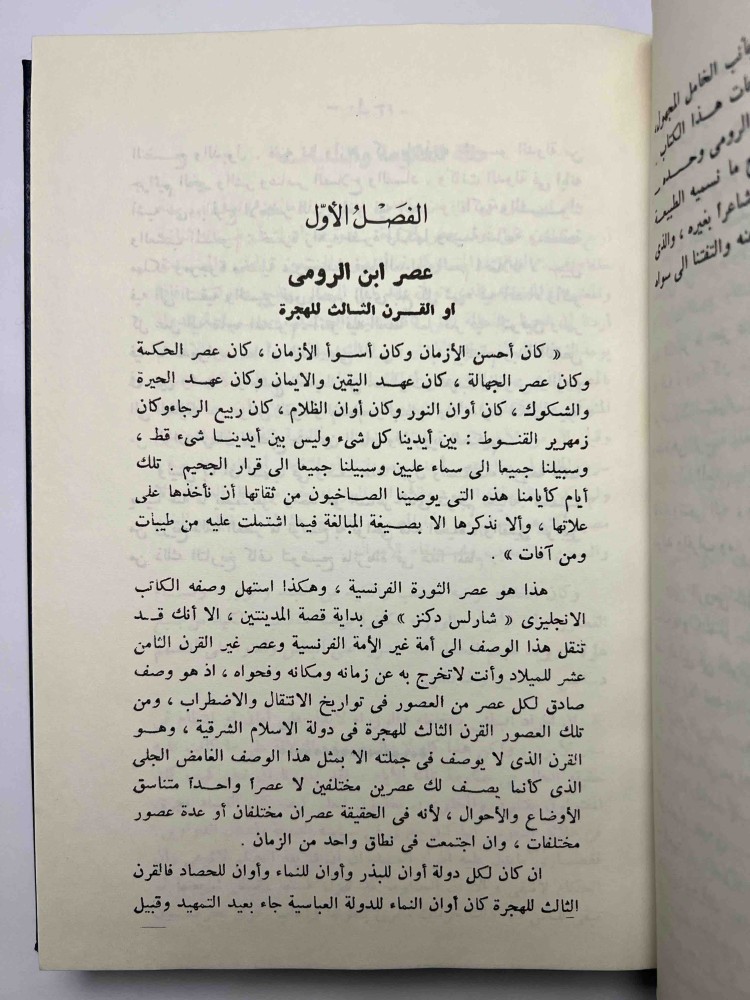 الفصل الأول
عصر ابن الرومى
او القرن الثالث للهجرة
« كان أحسن الأزمان وكان أسوأ الأزمان ، كان عصر الحكمة
وكان عصر الجهالة ، كان عهد اليقين والايمان وكان عهد الحيرة
والشكوك ، كان أوان النور وكان أوان الظلام ، كان ربيع الرجاء وكان
زمهرير القنوط : بين أيدينا كل شىء وليس بين أيدينا شىء قط ،
وسبيلنا جميعا الى سماء عليين وسبيلنا جميعا الى قرار الجحيم . تلك
أيام كأيامنا هذه التى يوصينا الصاخبون من ثقاتها أن نأخذها على
علاتها ، وألا نذكرها الا بصيغة المبالغة فيما اشتملت عليه من طيبات
ومن آفات » .
هذا هو عصر الثورة الفرنسية ، وهكذا استهل وصفه الكاتب
الانجليزى « شارلس دكنز » فى بداية قصة المدينتين ، الا أنك قد
تنقل هذا الوصف الى أمة غير الأمة الفرنسية وعصر غير القرن الثامن
عشر للميلاد وأنت لاتخرج به عن زمانه ومكانه وفحواه ، اذ هو وصف
صادق لكل عصر من العصور فى تواريخ الانتقال والاضطراب ، ومن
تلك العصور القرن الثالث للهجرة فى دولة الاسلام الشرقية ، وهو
القرن الذى لا يوصف فى جملته الا بمثل هذا الوصف الغامض الجلى
الذى كأنما يصف لك عصرين مختلفين لا عصرا واحدا متناسق
الأوضاع والأحوال ، لأنه فى الحقيقة عصران مختلفان أو عدة عصور
مختلفات ، وان اجتمعت فى نطاق واحد من الزمان .
ان كان لكل دولة أوان للبذر وأوان للنماء وأوان للحصاد فالقرن
الثالث للهجرة كان أوان النماء للدولة العباسية جاء بعيد التمهيد وقبيل
الخامل المجهول
هذا الكتاب .
الرومى وحده
ما نسميه الطبيعة
شاعرا بغيره ، والذى
والتفتنا الى سواه